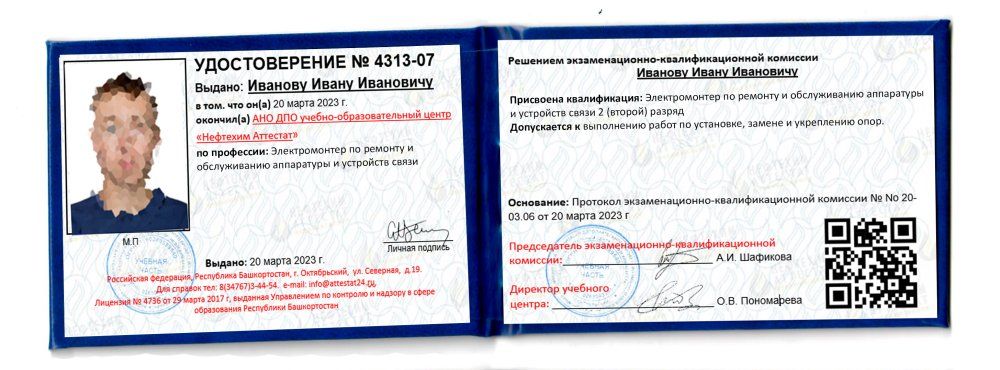 УДОСТОВЕРЕНИЕ № 4313-07
Выдано: Иванову Ивану Ивановичу
в том. что он(а) 20 марта 2023 г.
окончил(а) АНО ДПО учебно-образовательный центр
«Нефтехим Аттестат»
по профессии: Электромонтер по ремонту и
обслуживанию аппаратуры и устройств связи
М.П
Личная подпись
УЧЕБНАЯ
ЧАСТЬ
Выдано: 20 марта 2023 г.
Российская федерация, Республика Башкортостан, г. Октябрьский, ул. Северная, д.19.
Для справок тел: 8(34767)3-44-54. e-mail: info@attestat24.ru,
Лицензия № 4736 от 29 марта 2017 г, выданная Управлением по контролю и надзору в сфере
образования Республики Башкортостан
Решением экзаменационно-квалификационной комиссии
Иванову Ивану Ивановичу
Присвоена квалификация: Электромонтер по ремонту и обслуживанию аппаратуры
и устройств связи 2 (второй) разряд
Допускается к выполнению работ по установке, замене и укреплению опор.
Основание: Протокол экзаменационно-квалификационной комиссии № No 20-
03.06 от 20 марта 2023 г
Председатель экзаменационно-квалификационной
комиссии: А.И. Шафикова
УЧЕБНАЯ
ЧАСТЬ
Директор учебного
центра: О.В. Пономарева